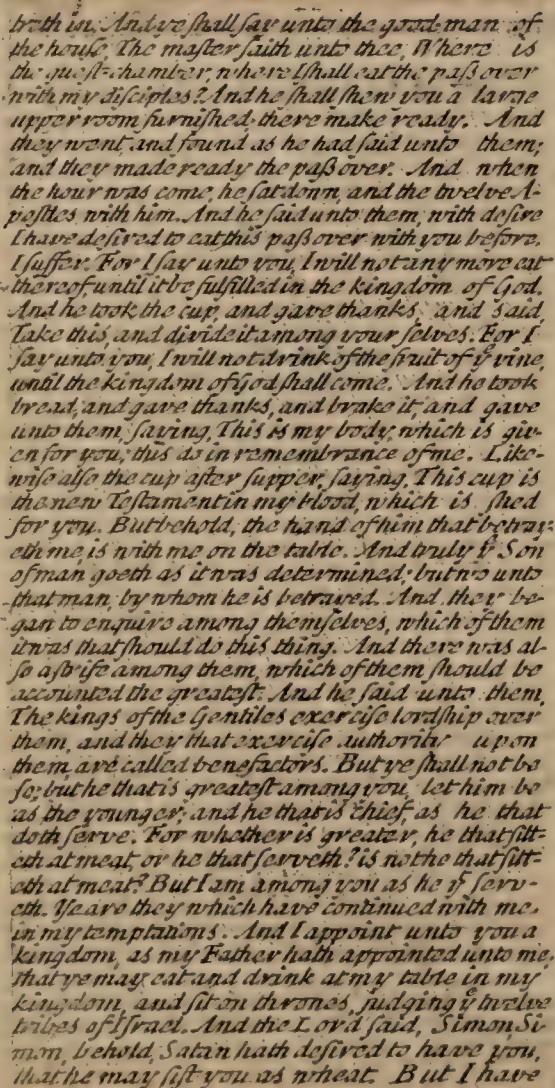 treth in. And ye ſhall ſay unto the good-man of
the houſe, The maſter ſaith unto thee, Where is
the gueſt-chamber, where I ſhall eat the paſſover
with my diſciples? And he ſhall ſhew you a large
upper room furniſhed: there make ready. And
they went, and found as he had ſaid unto them;
and they made ready the paſſover. And when
the hour was come, he ſat down, and the twelve A-
poſtles with him. And he ſaid unto them, with deſire
I have deſired to eat this paſſover with you before,
I ſuffer. For I ſay unto you, I will not any more eat
thereof, until it be fulfilled in the kingdom of God.
And he took the cup, and gave thanks, and ſaid,
Take this, and divide it among your ſelves. For I
ſay unto you, I will not drink of the fruit of yͤ vine,
until the kingdom of God ſhall come. And he took
bread, and gave thanks, and brake it, and gave
unto them, ſaying, This is my body, which is giv-
en for you; this do in remembrance of me. Like-
wiſe alſo the cup after ſupper, ſaying, This cup is
the new Teſtament in my blood, which is ſhed
for you. But behold, the hand of him that betray-
eth me, is with me on the table. And truly yͤ Son
of man goeth as it was determined; but wo unto
that man, by whom he is betrayed. And they be-
gan to enquire among themſelves, which of them
it was that ſhould do this thing. And there was al-
ſo a ſtrife among them, which of them ſhould be
accounted the greateſt. And he ſaid unto them,
The kings of the Gentiles exerciſe lordſhip over
them, and they that exerciſe authority upon
them, are called benefactors. But ye ſhall not be
ſo; but he that is greateſt among you, let him be
as the younger; and he that is chief, as he that
doth ſerve. For whether is greater, he that ſitt-
eth at meat, or he that ſerveth? is not he that ſitt-
eth at meat? But I am among you as he yͭ ſerv-
eth. Ye are they which have continued with me
in my temptations. And I appoint unto you a
kingdom, as my Father hath appointed unto me,
that ye may eat and drink at my table in my
kingdom, and ſit on thrones, judging yͤ twelve
tribes of Iſrael. And the Lord ſaid, Simon, Si-
mon, behold, Satan hath deſired to have you,
that he may ſift you as wheat. But I have